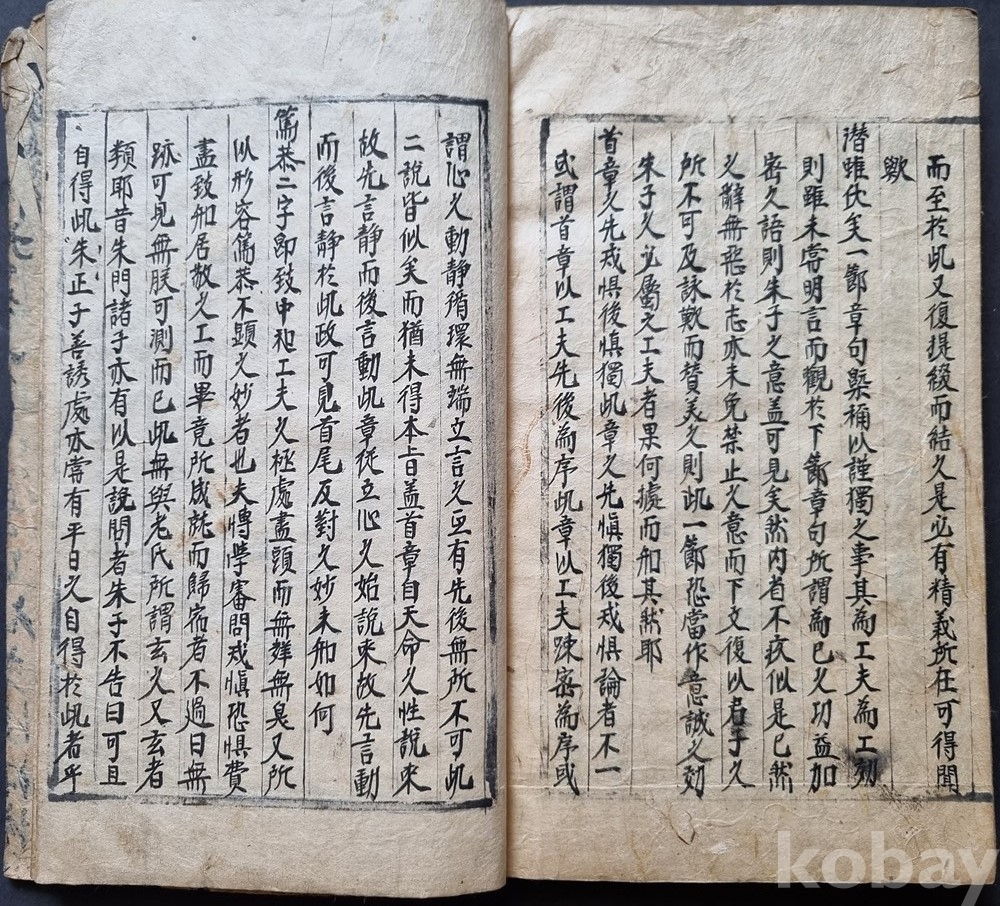 而至於此又復提綴而結之是必有精義所在可得聞
歟
潛雖伏矣一節章句槩稱以謹獨之事其爲工夫爲工刻
則雖未甞明言而觀於下節章句所謂爲己之功益加
密之語則朱子之意盖可見矣然内省不疚似是已然
之辭無惡於志亦未免禁止之意而下文復以君子之
所不可及詠歎而賛美之則此一節恐當作意誠之刻
朱子之必屬之工夫者果何據而知其然耶
首章之先戒惧後愼獨此章之先愼獨後戒惧論者不一
或謂首章以工夫先後爲序此章以工夫踈密爲序或
謂心之動静循環無端立言之且有先後無所不可此
二說皆似矣而猶未得本旨盖首章自天命之性說来
故先言静而後言動此章従立心之始說来故先言動
而後言静於此政可見首尾反對之妙未知如何
篤恭二字即致中和工夫之極處盡頭而無聲無臭又所
以形容篤恭不顯之妙者也夫博學審問戒愼恐惧費
盡致知居敬之工而畢竟所成就而歸宿者不過曰無
跡可見無朕可測而已此無與老氏所謂玄之又玄者
類耶昔朱門諸子亦有以是說問者朱子不告曰可且
自得此朱正子善誘處亦甞有平日之自得於此者乎
kobay